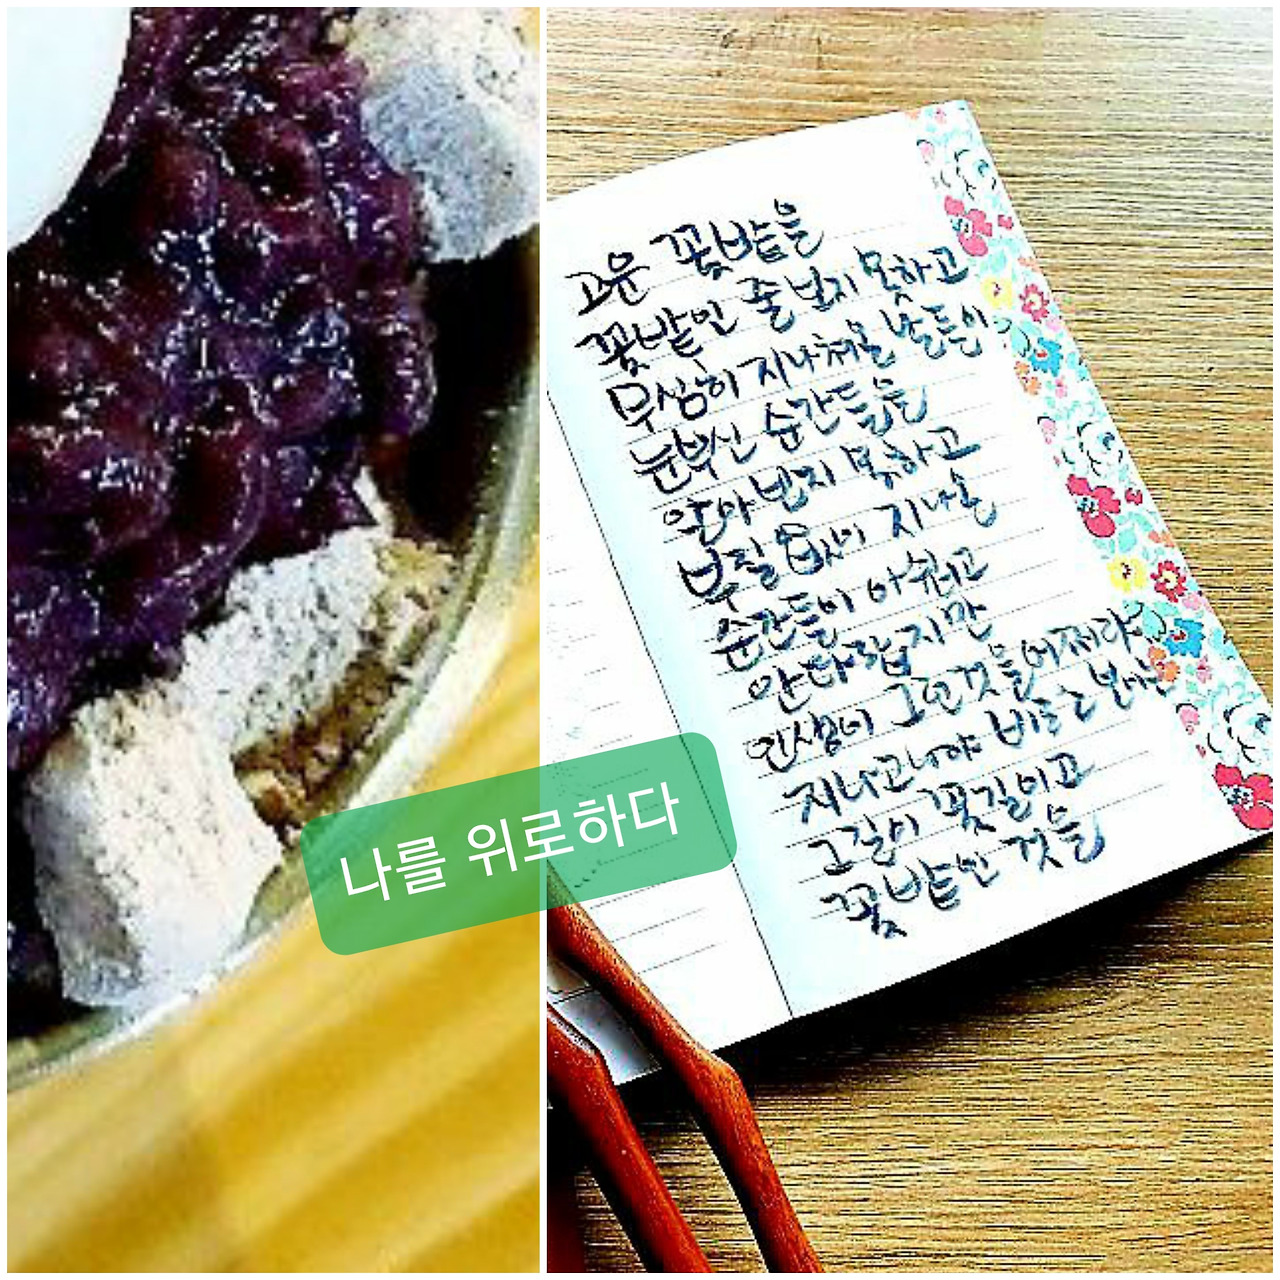 고운 꽃밭을
꽃밭인 줄 보지 못하고
무심히 지나쳐온 날들이
눈부신 순간들을
알아보지 못하고
부질없이 지나온
순간들이 아쉽고
안타깝지만
인생이 그런것을 어쩌랴
지나고나야 비로소 보이는
그길이 꽃길이고
꽃밭인 것을
나를 위로하다